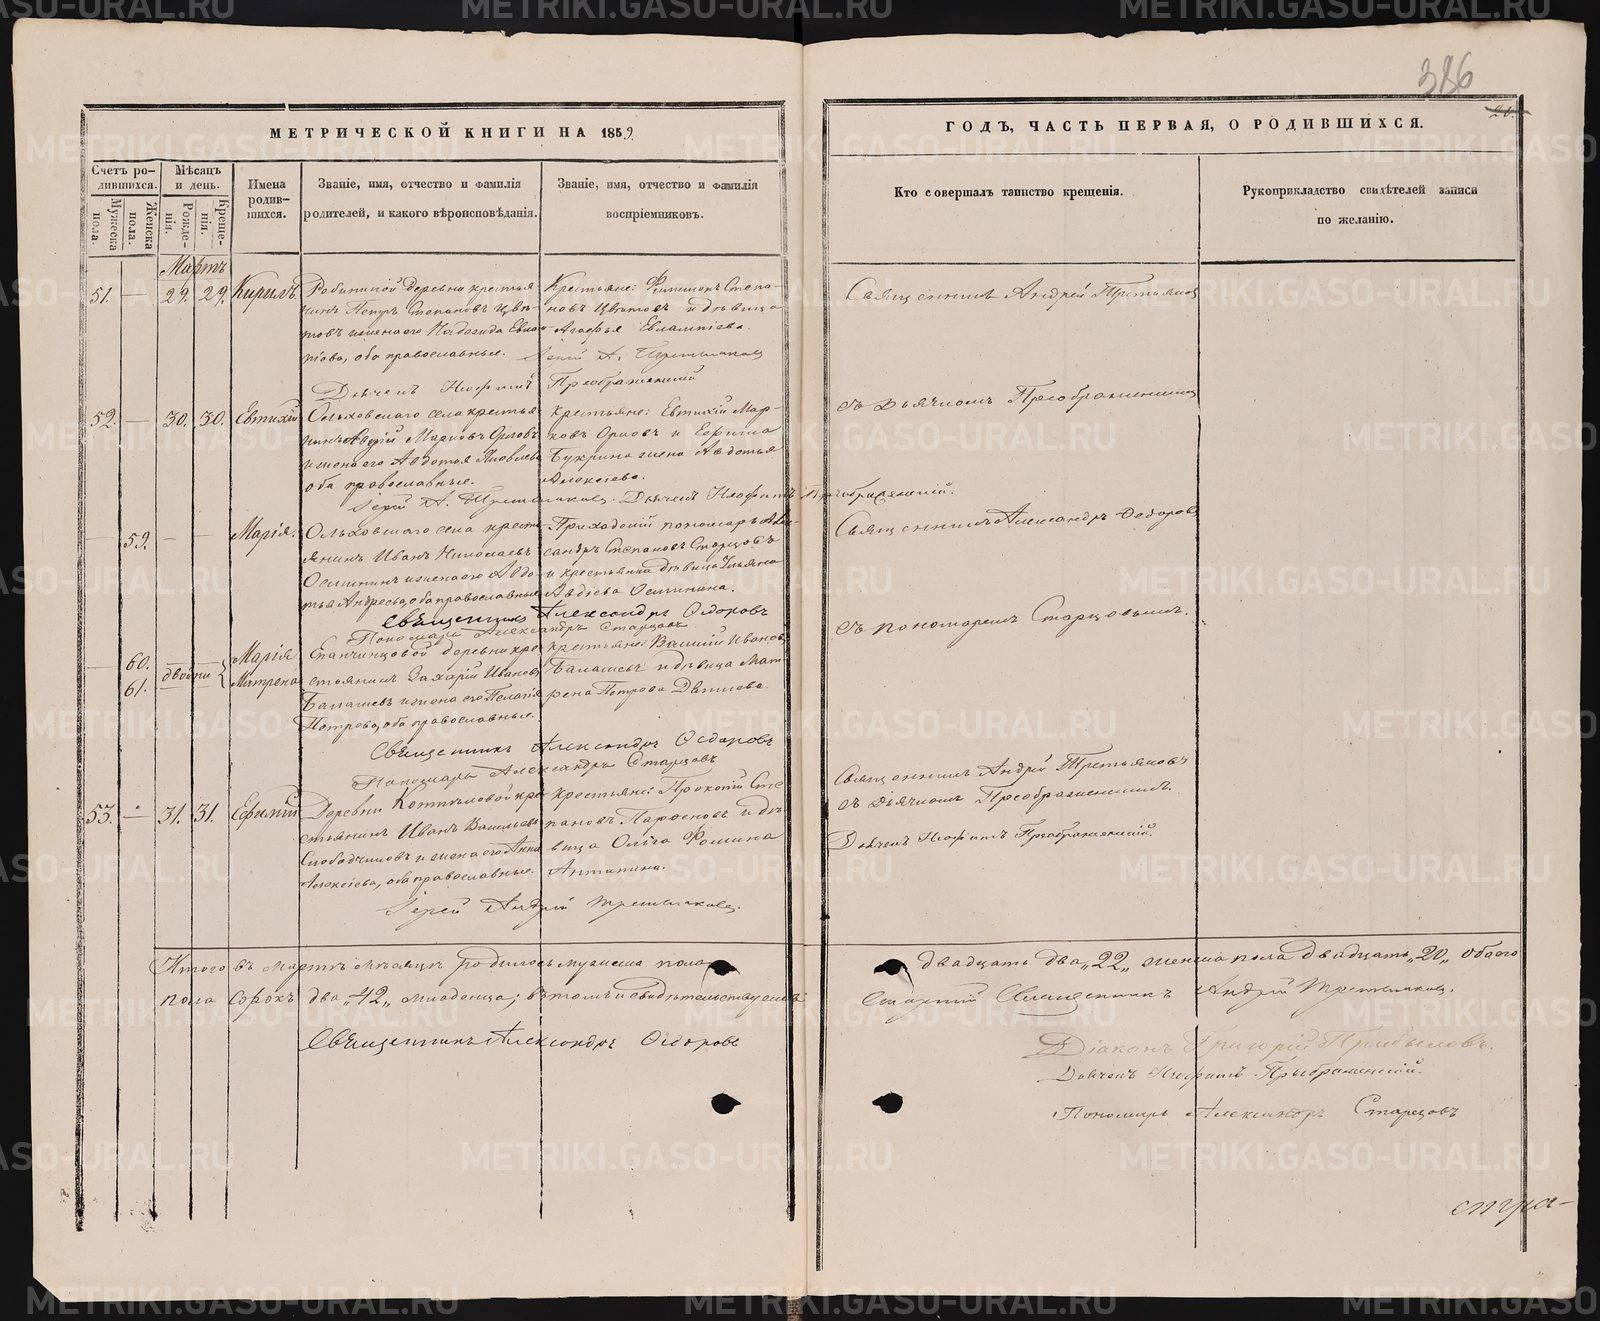 386
21.
МЕТРИЧЕСКОЙ КНИГИ НА 1859.
ГОДЪ, ЧАСТЬ ПЕРВАЯ, О РОДИВШИХСЯ.
Счетъ родившихся.
Мужеска пола.
Женска пола.
Мѣсяцъ и день.
Рожденія.
Крещенія.
Имена родившихся.
Званіе, имя, отчество и фамилія родителей, и какого вѣроисповѣданія.
Званіе, имя, отчество и фамилія воспріемниковъ.
Кто совершалъ таинство крещенія.
Рукоприкладство свидѣтелей записи по желанію.
Мартъ
51. — 29. 29. Кирилъ.
деревни крестья-
нинъ Петръ Степановъ Цвѣ-
товъ и жена его Надежда Евлам-
піова, оба православные.
Крестьяне: Филимонъ Степа-
новъ Цвѣтовъ и дѣвица
Агафья Евлампіева.
Іерей А. Третьяковъ
Дьячекъ Неофитъ Преображенскій
Священникъ Андрей Третьяковъ
52. — 30. 30. Евтихій
Ольховскаго села крестья-
нинъ Авдій Марковъ Орловъ
и жена его Авдотья Яковлева
оба православные.
Крестьяне: Евтихій Мар-
ковъ Орловъ и Ефима
Букрина жена Авдотья
Алексіева.
Іерей А. Третьяковъ. Дьячекъ Неофитъ Преображенскій.
съ Дьячкомъ Преображенскимъ
— 59. — — Марія.
Ольховскаго села кресть-
янинъ Иванъ Николаевъ
Осминин и жена его Авдо-
тья Андреева, оба православные
Приходскій пономарь Алек-
сандръ Степановъ Старцовъ
и крестьянка дѣвица Ульяна
Авдіева Осминина.
Священникъ Александръ Ѳедоровъ
Пономарь Александръ Старцовъ
Священникъ Александръ Ѳедоровъ
съ пономаремъ Старцовымъ.
— 60. 61. двойни Марія Матрена
Епанчинцовой деревни кре-
стьянинъ Захарій Ивановъ
Балашевъ и жена его Пелагія
Петрова, оба православные.
крестьяне: Василій Ивановъ
Балашевъ и дѣвица Мат-
рена Петрова
Священникъ Александръ Ѳедоровъ
Пономарь Александръ Старцовъ
53. — 31. 31. Ефимій
Деревни кре-
стьянинъ Иванъ Васильевъ
Слободчиковъ и жена его Анна
Алексіева, оба православные.
крестьяне: Прокопій Сте-
пановъ и дѣ-
вица Ольга Фомина
Антипина.
Іерей Андрей Третьяковъ.
Священникъ Андрей Третьяковъ
съ Дьячкомъ Преображенскимъ.
Дьячекъ Неофитъ Преображенскій.
Итого въ Мартѣ мѣсяцѣ родилось мужеска пола двадцать два „22„ женска пола двадцать „20„ обоего
пола сорокъ два „42„ младенца; въ томъ и свидѣтельствуемъ: Старшій Священникъ Андрей Третьяковъ.
Священникъ Александръ Ѳедоровъ
Діаконъ Григорій Прибыловъ.
Дьячекъ Неофитъ Преображенскій.
Пономарь Александръ Старцовъ
стра-
METRIKI.GASO-URAL.RU